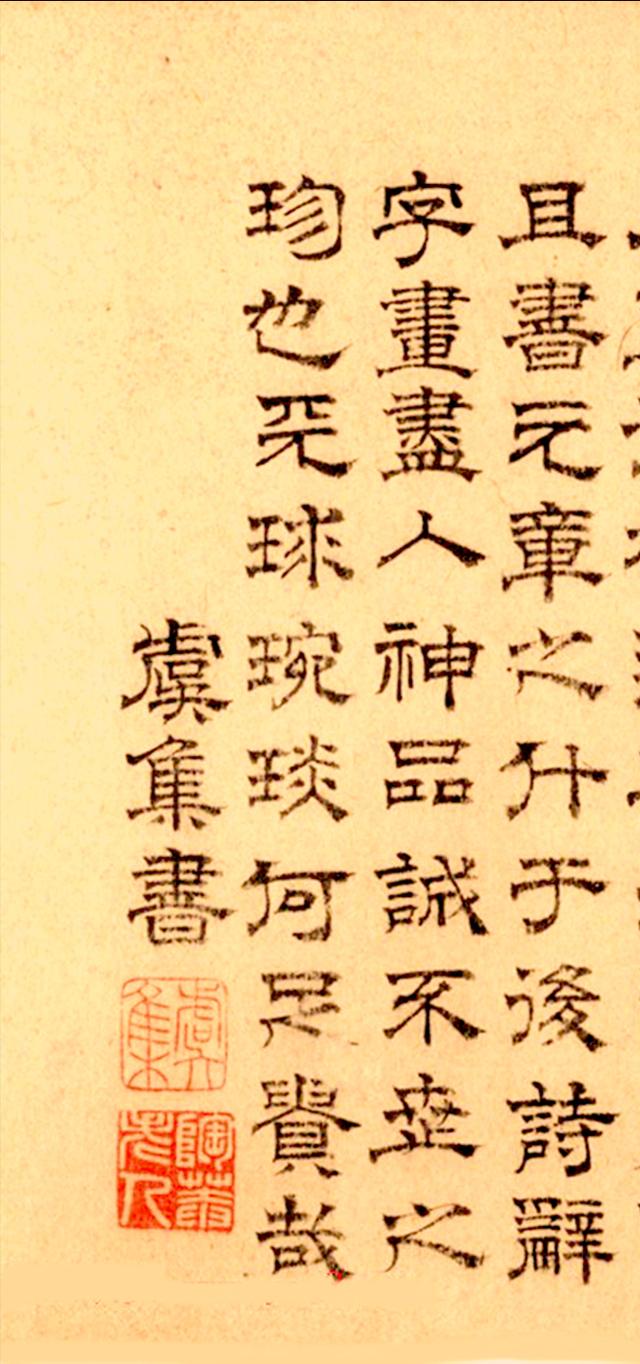 且書元章之什于後詩辭
字畫盡入神品誠不世之
珍也天球琬琰何足貴哉
虞集書
虞集